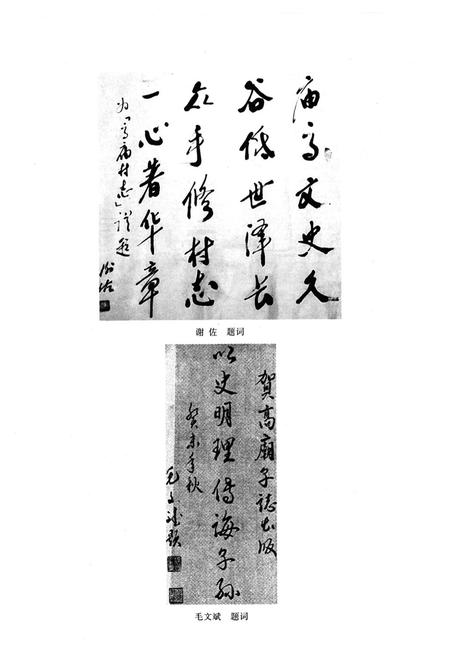 庙高文史久
谷低世泽长
众手修村志
一心著华章
为《高庙村志》谨题
谢佐
谢佐 题词
贺高庙子志出版
以史明理传诲子孙
癸未年秋
毛文斌题
毛文斌 题词